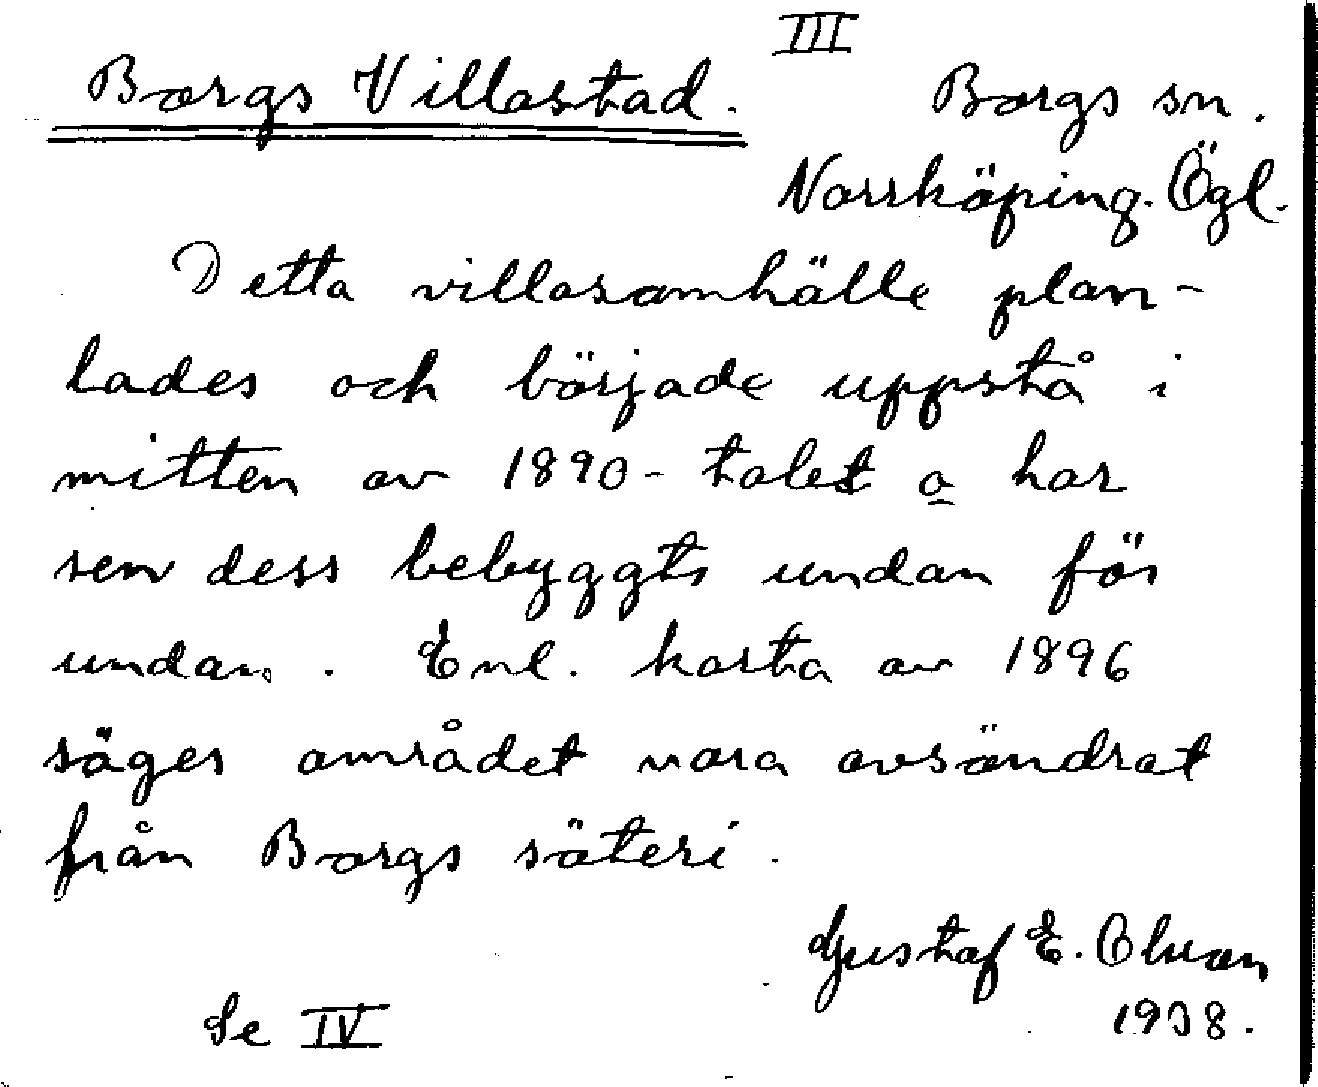 III
Borgs Villastad. Borgs sn.
Norrköping. Ögl.
Detta villasamhälle plan-
lades och började uppstå i
mitten av 1890-talet o har
sen dess bebyggts undan för
undan. Enl. karta av 1896
säges området vara avsöndrat
från Borgs säteri.
Gustaf E. Olsson
1938.
Se IV